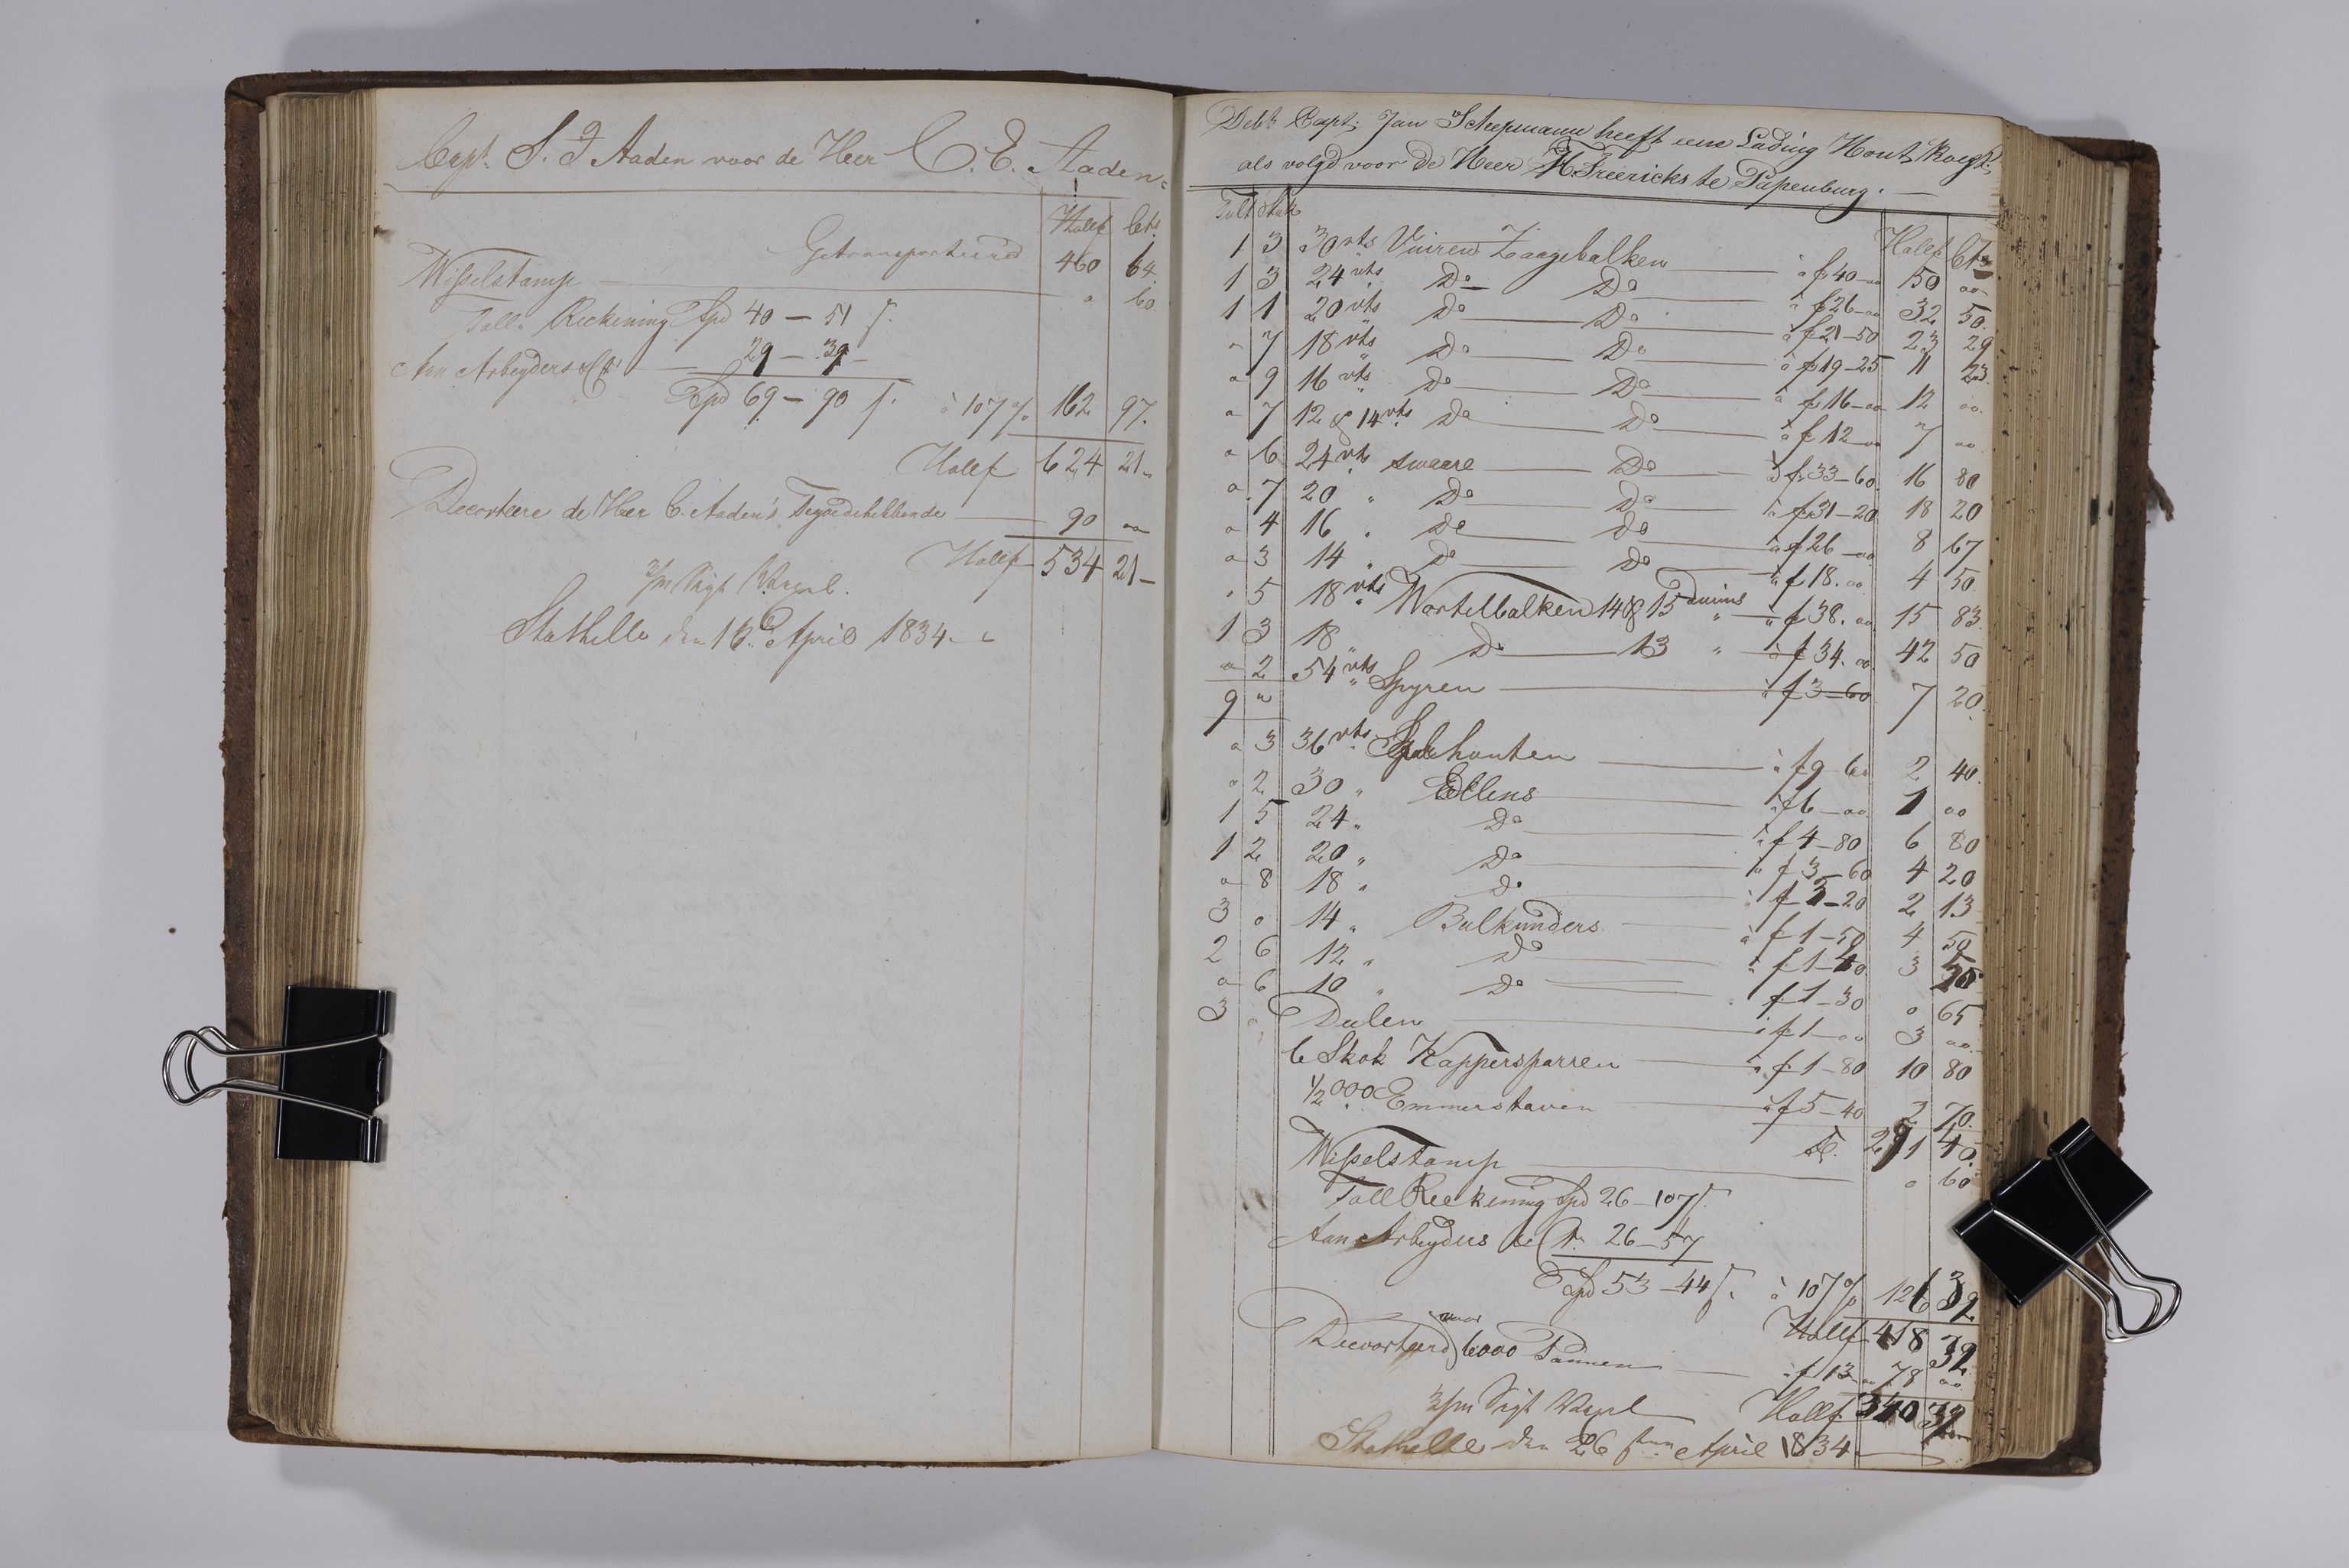 Capt. S. J Aaden voor de Heer C. E. Aaden
Hollf Cts.
Getransporteered 460 64
Wisselstamp — " 60
Toll Reckening Spd 40 — 51 s.
Aan Arbeyders &c — 29 — 39
Spd 69 — 90 s. à 107 % 162 97.
Hollf 624 21
Decorteere de Heer C. Aaden's Tegoedehebbende — 90 "
Hollf 534 21
3/m Sigt
Stathelle den 16 April 1834.
Debt. Capt. Jan Schepmann heeft eene Lading Hout
als volgd voor de Heer H Freericks te Papenburg.
Tult Stuk Hollf Cts
1 3 30 vts Vuiren Zaagebalken — à f 40 — " 50 "
1 3 24 vts Do Do — à f 26 — " 32 50
1 1 20 vts Do Do — à f 21 — 50 23 29
" 7 18 vts Do Do — à f 19 — 25 11 23
" 9 16 vts Do Do — à f 16 — " 12 "
" 7 12 & 14 vts Do Do — à f 12 — " 7 "
" 6 24 vts swaare Do — à f 33 — 60 16 80
" 7 20 " Do Do — à f 31 — 20 18 20
" 4 16 " Do Do — à f 26 — " 8 67
" 3 14 " Do Do — à f 18. " 4 50
" 5 18 vts Wortelbalken 14 & 15 duims — à f 38. " 15 83
1 3 18 " Do — 13 " — à f 34. " 42 50
" 2 54 vts Spyren — à f 3 — 60 7 20
9 "
" 3 36 vts houten — à f 9 60 2 40
" 2 30 " Ellens — à f 6 — " 1 "
1 5 24 " Do — à f 4 — 80 6 80
1 2 20 " Do — à f 3 — 60 4 20
" 8 18 " Do — à f 3 — 20 2 13
3 " 14 " Bulkunders — à f 1 — 50 4 50
2 6 12 " Do — à f 1 — 40 3 50
" 6 10 " Do — f 1 — 30 " 65
3 " Deelen — à f 1 — " 3 "
6 Skok Kappersparren — à f 1 — 80 10 80
1/2 000 Emmerstaven — à f 5 — 40 2 70
291 40
Wisselstamp — " 60
Toll Reekening Spd 26 — 107 s.
Aan Arbeyders &c 26 — 57
Spd 53 — 44 s. à 107 % 126 32
Hollf 418 32
Decorteerd voor 6000 Pannen — à f 13 — " 78 "
3/m Sigt Hollf 340 32
Stathelle den 26 sten April 1834